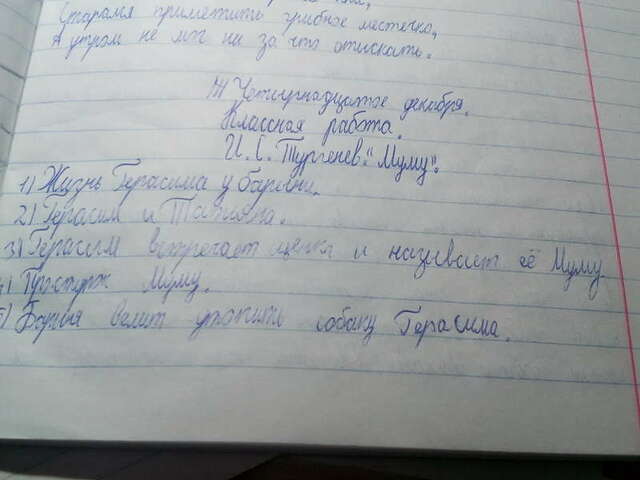 Старался приметить грибное местечко,
А утром не мог ни за что отыскать.
Четырнадцатое декабря.
Классная работа.
И. С. Тургенев. "Муму".
1) Жизнь Герасима у барыни.
2) Герасим и Татьяна.
3) Герасим встречает щенка и называет её Муму
4) Поступок Муму.
5) Барыня велит утопить собаку Герасима.